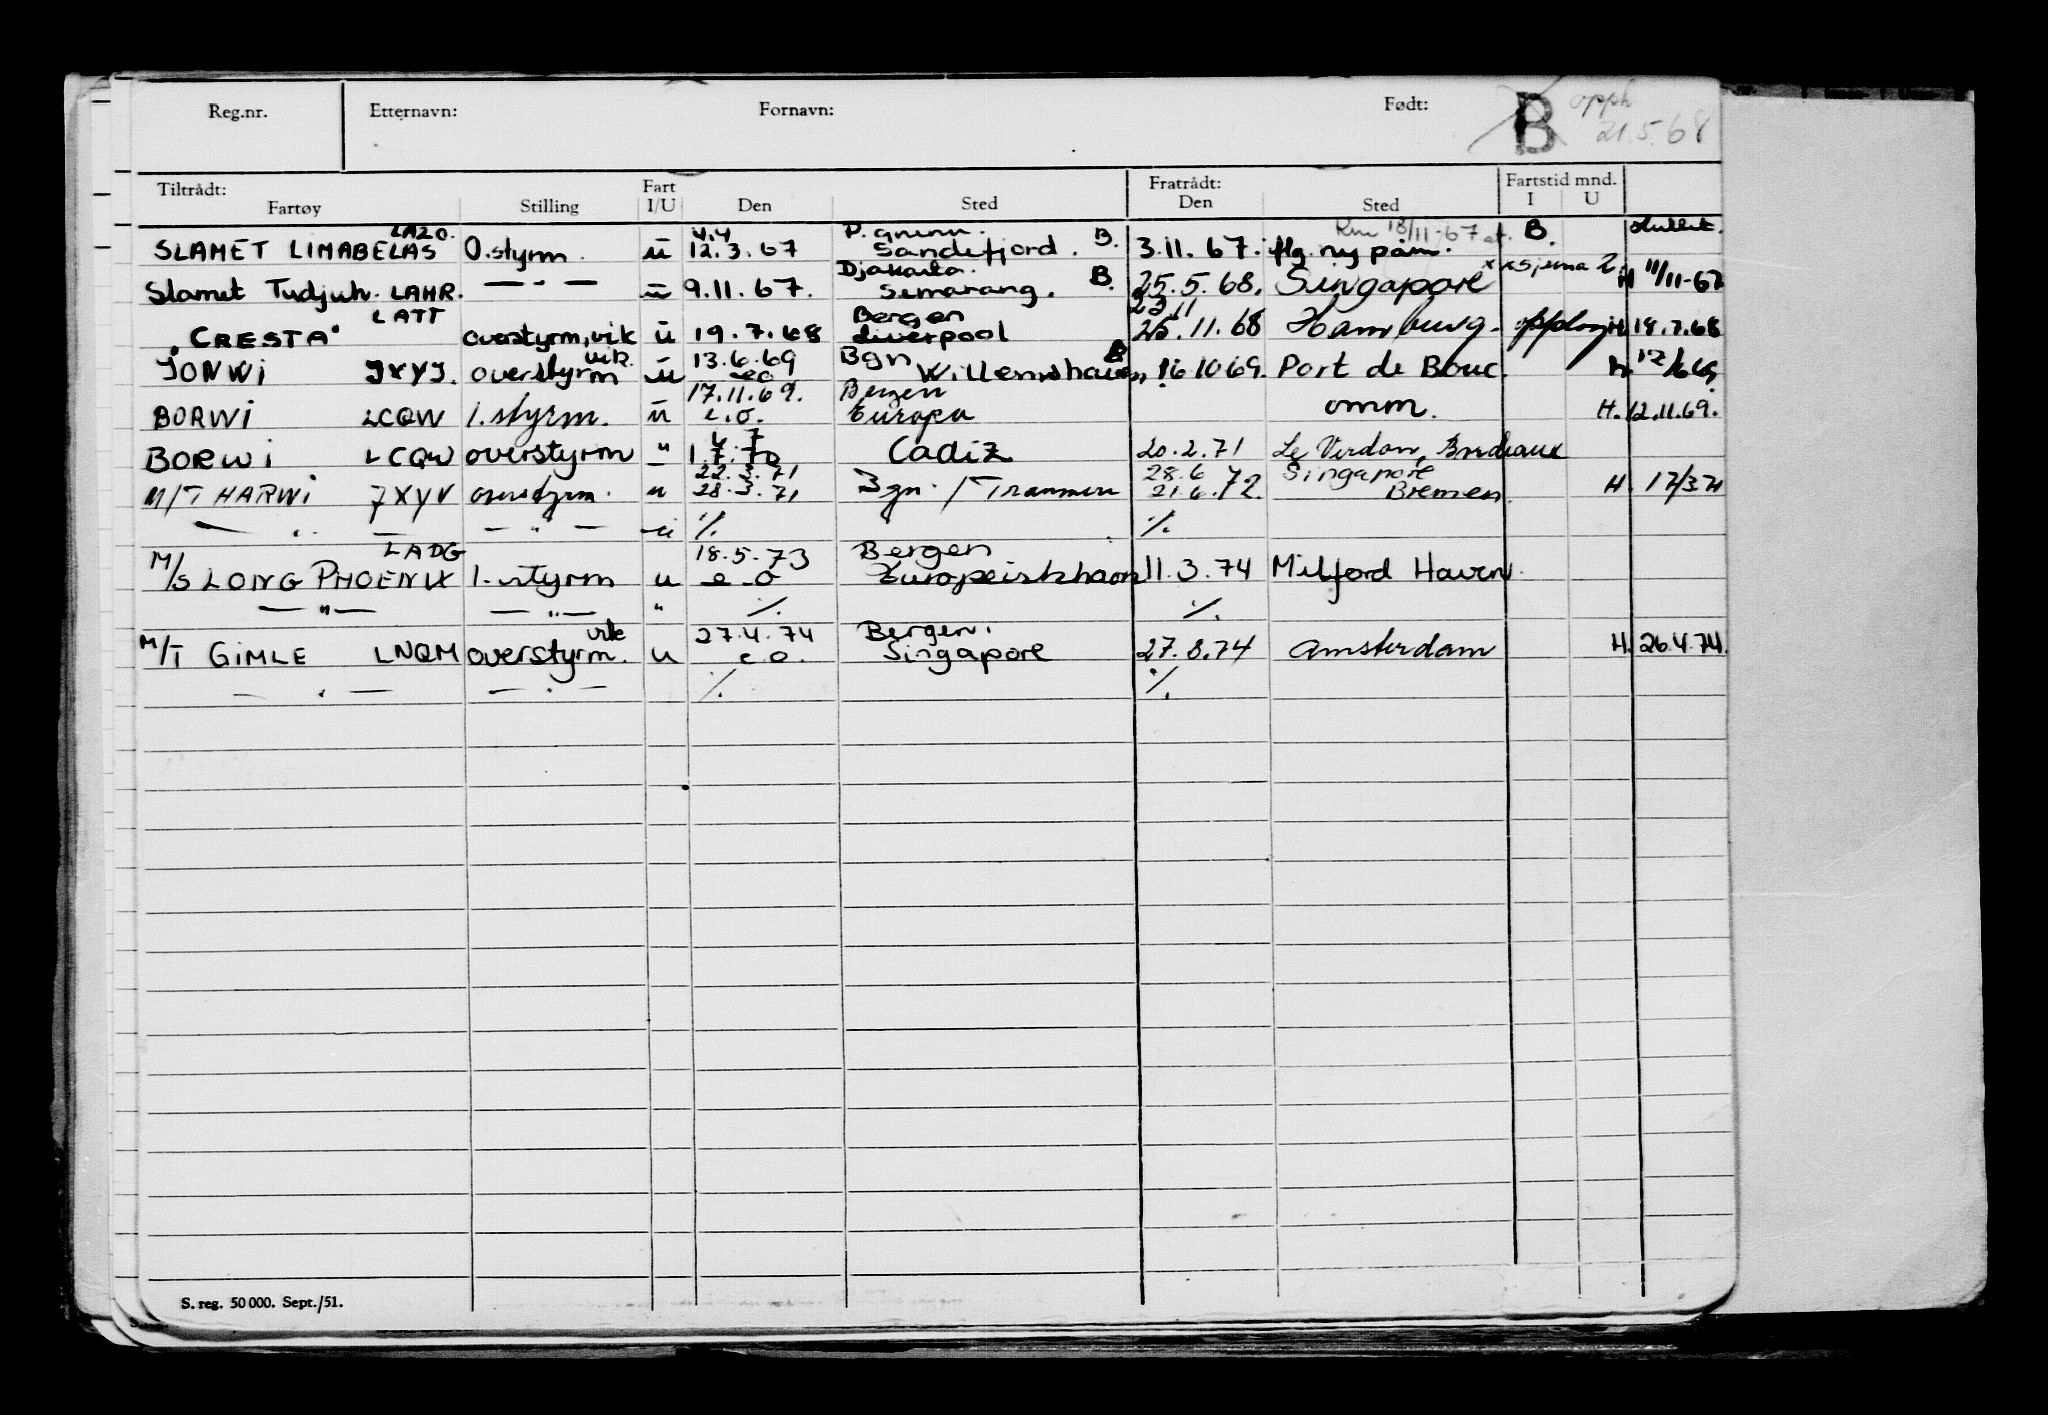 Reg.nr. Etternavn: Fornavn: Født: B opph
21.5.68
Tiltrådt: Fart Fratrådt: Fartstid mnd.
Fartøy Stilling I/U Den Sted Den Sted I U
LAZO. 4.4 P. grunn. 18/11-67 B.
SLAMET LIMABELAS O.styrm. u 12.3.67 Sandefjord. B. 3.11.67. flg. ny påm.
Djakarta.
Slamet Tudjuh. LAHR. — " — u 9.11.67. Semarang. B. 25.5.68. Singapore H 11/11-67
LATT Bergen 23 11
"CRESTA" overstyrm, vik u 19.7.68 Liverpool 25.11.68 Hamburg. H. 18.7.68
vik. 13.6.69 Bgn B
JONWI JXYJ. overstyrm u eo Willemshaven, 16.10.69. Port de Bouc. H. 12/6 69.
17.11.69. Bergen
BORWI LCQW 1. styrm. u e.o. Europa omm. H. 12.11.69.
4 7
BORWI LCQW overstyrm " 1.7.70 Cadiz 20.2.71 Le Verdon, Bordeaux
22.3.71 28.6 Singapore
M/T HARWI JXYV overstyrm. u 28.3.71 Bgn. / Tranmere 21.6.72. Bremen. H. 17/3 71
— " — — " — u %. %.
LADG 18.5.73 Bergen
M/S LONG PHOENIX 1. styrm u e.o Europeisk havn 11.3.74 Milford Haven.
— " — — " — " %. %.
vik 27.4.74 Bergen.
M/T GIMLE LNQM overstyrm. u e.o. Singapore 27.8.74 Amsterdam H. 26.4.74.
— " — — " — %. %.
S. reg. 50 000. Sept./51.